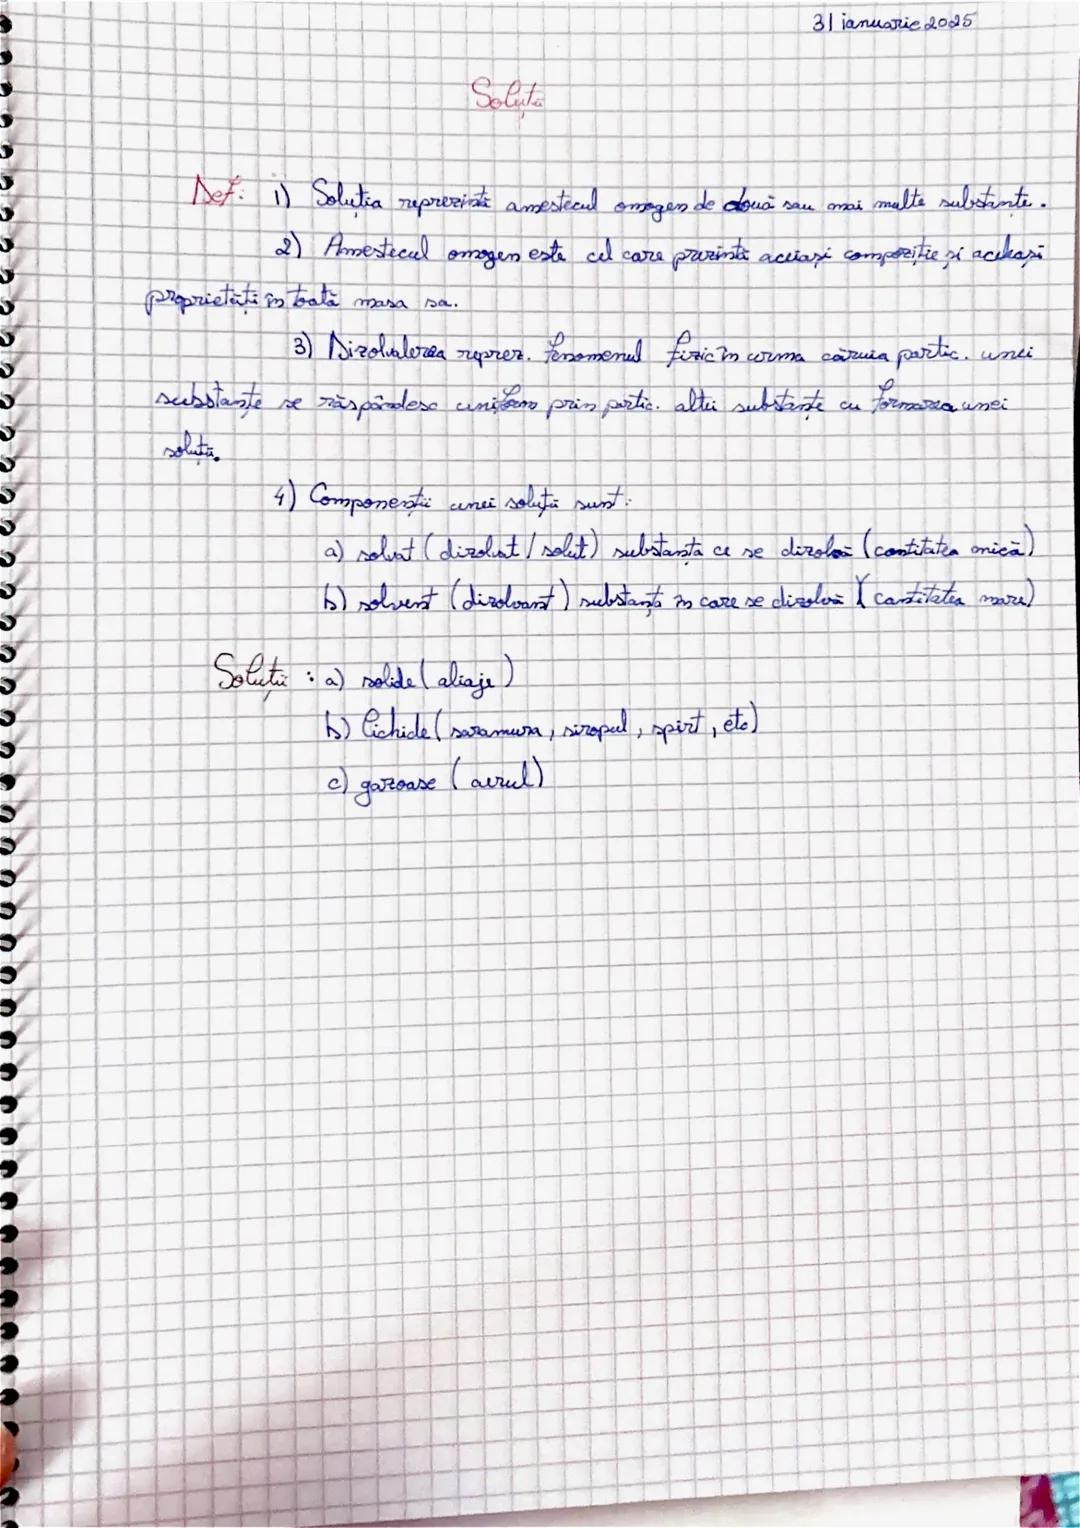 31 ianuarie 2025
Soluții
Def: 1) Soluția reprezintă amestecul omogen de două sau mai multe substanțe.
2) Amestecul omogen este cel care prezintă aceiași compoziție și aceleași
proprietăți în toată masa sa.
3) Dizolvalerea reprez. fenomenul fizic în urma căruia partic. unei
substanțe se răspândesc uniform prin partic. altei substanțe cu formarea unei
soluții.
4) Componenții unei soluții sunt:
a) solvat (dizolvat / solut) substanța ce se dizolvă (cantitatea mică)
b) solvent (dizolvant) substanță în care se dizolvă (cantitatea mare)
Soluții : a) solide (aliaje)
b) lichide (saramura, siropul, spirt, etc)
c) gazoase (aerul)